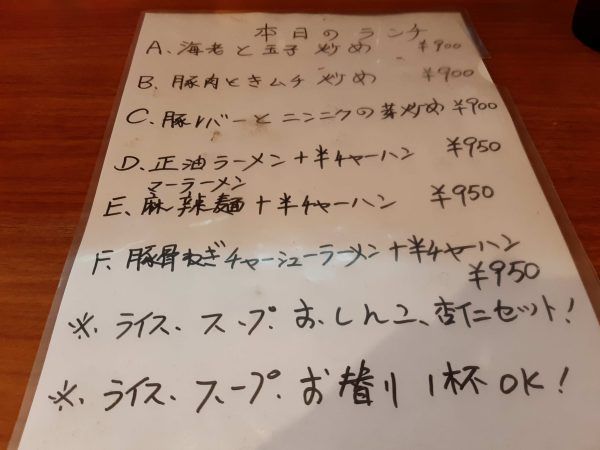 本日のランチ
A、海老と玉子炒め ¥900
B、豚肉ときムチ炒め ¥900
C、豚レバーとニンニクの芽炒め ¥900
D、正油ラーメン+半チャーハン ¥950
マーラーメン
E、麻辣麺+半チャーハン ¥950
F、豚骨ねぎチャーシューラーメン+半チャーハン
¥950
※、ライス、スープ、おしんこ、杏仁セット!
※、ライス、スープ、お替り1杯OK!